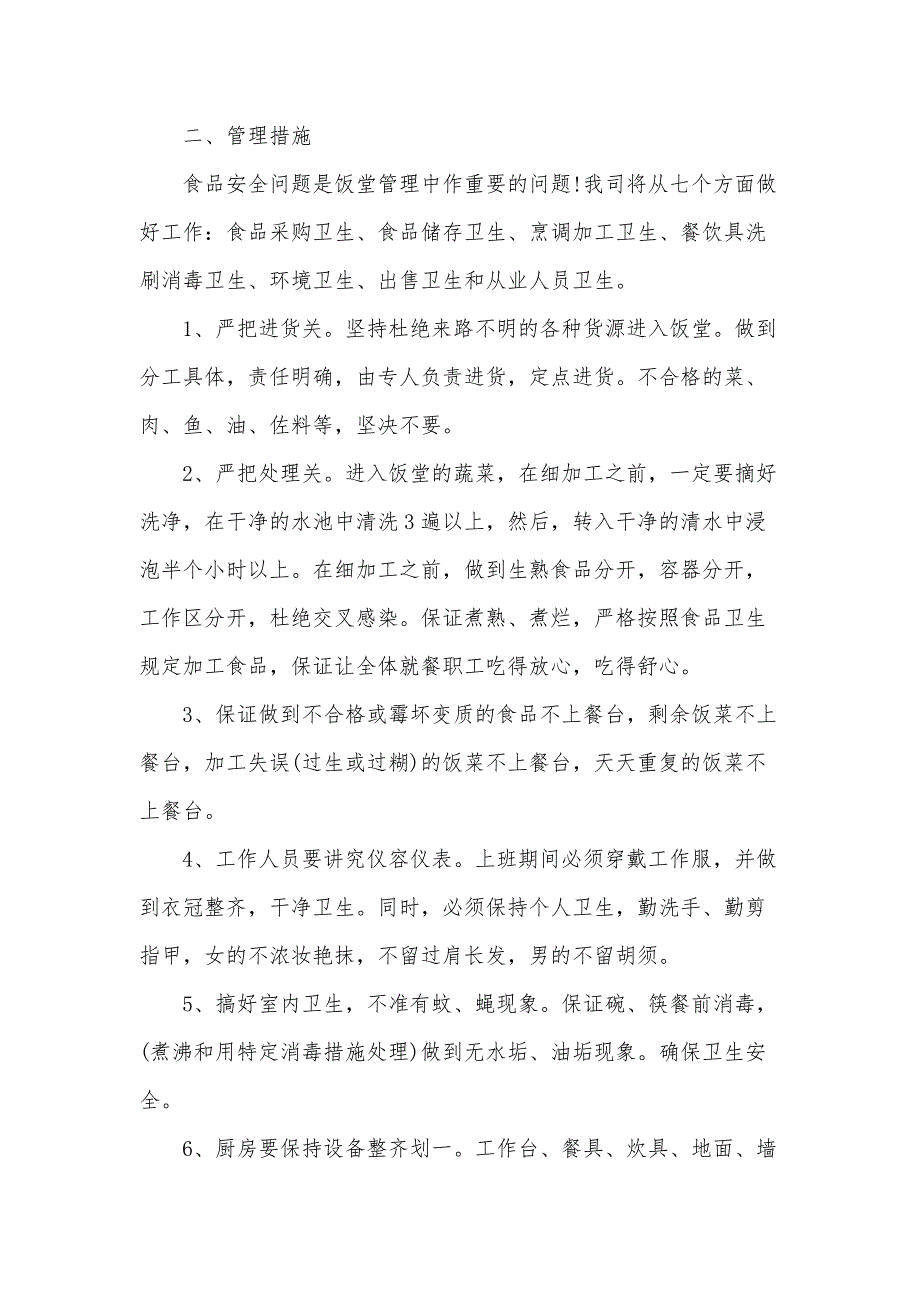 二、管理措施
食品安全问题是饭堂管理中作重要的问题!我司将从七个方面做
好工作：食品采购卫生、食品储存卫生、烹调加工卫生、餐饮具洗
刷消毒卫生、环境卫生、出售卫生和从业人员卫生。
1、严把进货关。坚持杜绝来路不明的各种货源进入饭堂。做到
分工具体，责任明确，由专人负责进货，定点进货。不合格的菜、
肉、鱼、油、佐料等，坚决不要。
2、严把处理关。进入饭堂的蔬菜，在细加工之前，一定要摘好
洗净，在干净的水池中清洗3遍以上，然后，转入干净的清水中浸
泡半个小时以上。在细加工之前，做到生熟食品分开，容器分开，
工作区分开，杜绝交叉感染。保证煮熟、煮烂，严格按照食品卫生
规定加工食品，保证让全体就餐职工吃得放心，吃得舒心。
3、保证做到不合格或霉坏变质的食品不上餐台，剩余饭菜不上
餐台，加工失误(过生或过糊)的饭菜不上餐台，天天重复的饭菜不
上餐台。
4、工作人员要讲究仪容仪表。上班期间必须穿戴工作服，并做
到衣冠整齐，干净卫生。同时，必须保持个人卫生，勤洗手、勤剪
指甲，女的不浓妆艳抹，不留过肩长发，男的不留胡须。
5、搞好室内卫生，不准有蚊、蝇现象。保证碗、筷餐前消毒，
(煮沸和用特定消毒措施处理)做到无水垢、油垢现象。确保卫生安
全。
6、厨房要保持设备整齐划一。工作台、餐具、炊具、地面、墙